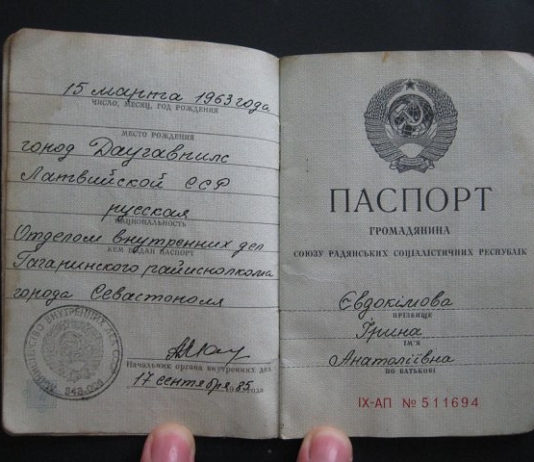 15 марта 1963 года
ЧИСЛО, МЕСЯЦ, ГОД РОЖДЕНИЯ
МЕСТО РОЖДЕНИЯ
город Даугавпилс
Латвийской ССР
русская
НАЦИОНАЛЬНОСТЬ
Отделом внутренних дел
КЕМ ВЫДАН ПАСПОРТ
Гагаринского райисполкома
города Севастополя
Начальник органа внутренних дел
17 сентября 85
года
МИНИСТЕРСТВО ВНУТРЕННИХ ДЕЛ СССР
ПАСПОРТ
ГРОМАДЯНИНА
СОЮЗУ РАДЯНСЬКИХ СОЦІАЛІСТИЧНИХ РЕСПУБЛІК
Євдокімова
ПРІЗВИЩЕ
Ірина
ІМ'Я
Анатоліївна
ПО БАТЬКОВІ
IX-АП № 511694